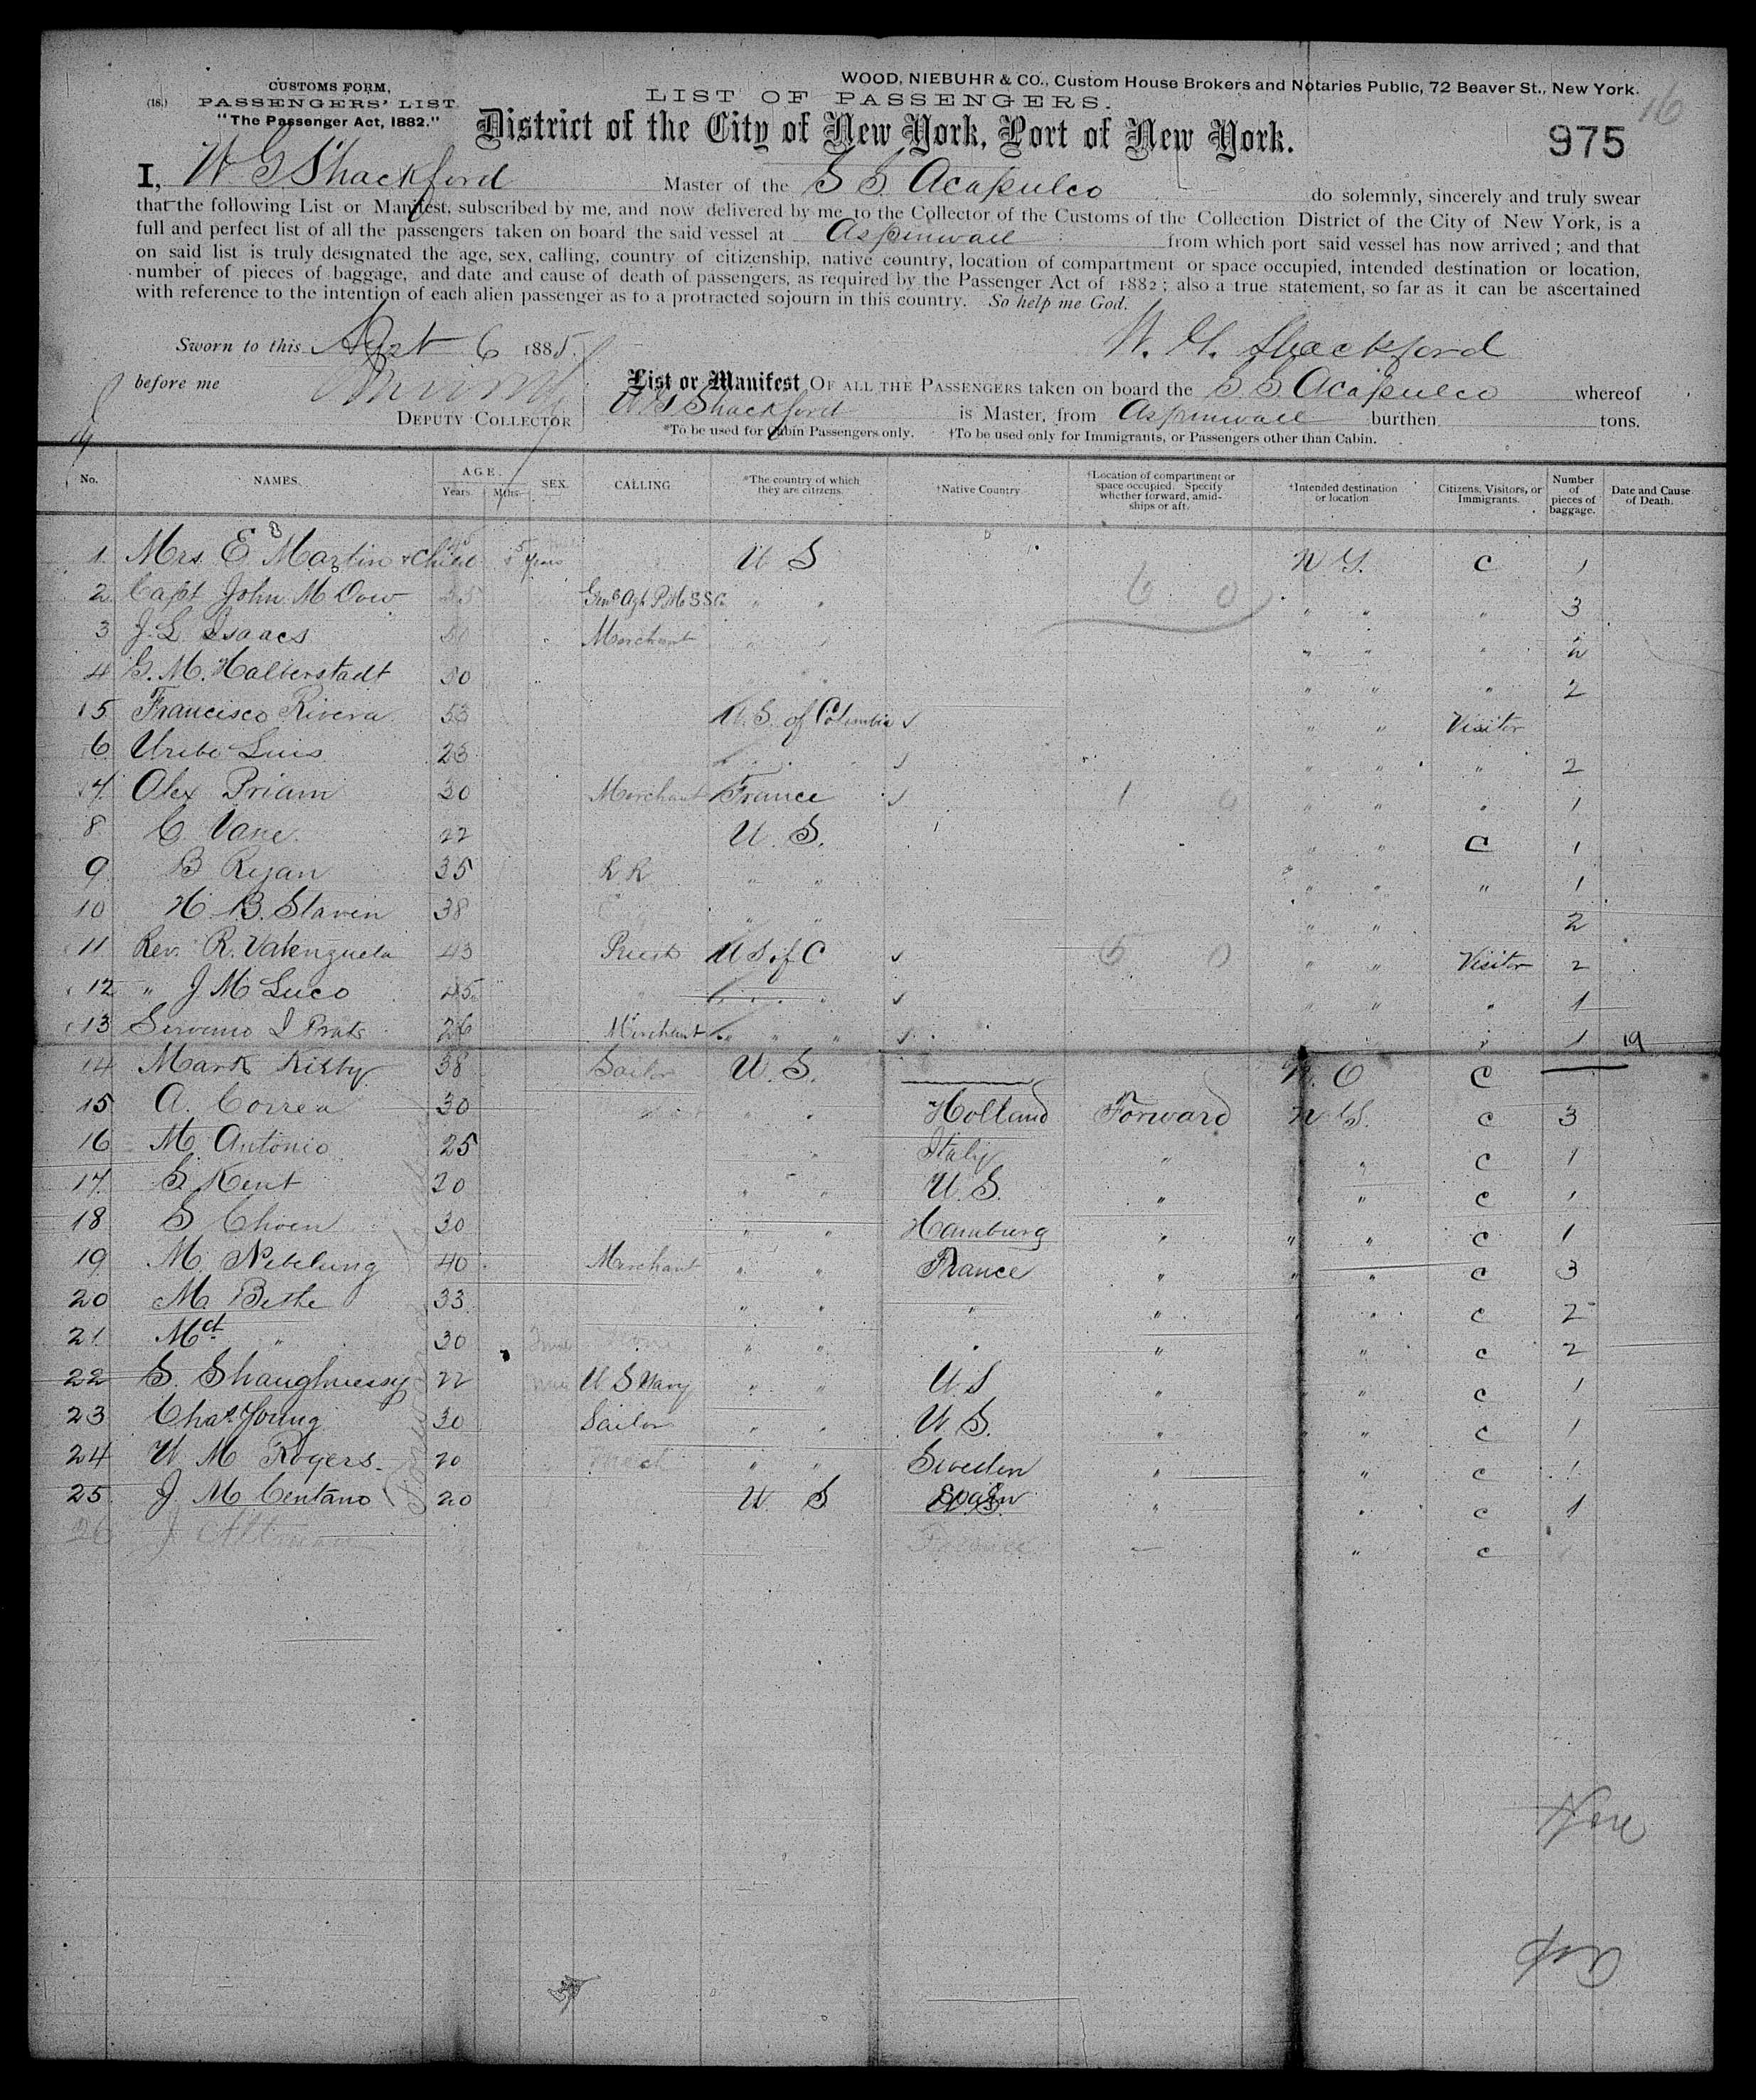 WOOD, NIEBUHR & CO., Custom House Brokers and Notaries Public, 72 Beaver St., New York.
16
CUSTOMS FORM,
(18.) PASSENGERS' LIST.
"The Passenger Act, 1882."
LIST OF PASSENGERS.
District of the City of New York, Port of New York.
975
I, W G Shackford Master of the S S Acapulco do solemnly, sincerely and truly swear
that the following List or Manifest, subscribed by me, and now delivered by me to the Collector of the Customs of the Collection District of the City of New York, is a
full and perfect list of all the passengers taken on board the said vessel at Aspinwall from which port said vessel has now arrived; and that
on said list is truly designated the age, sex, calling, country of citizenship, native country, location of compartment or space occupied, intended destination or location,
number of pieces of baggage, and date and cause of death of passengers, as required by the Passenger Act of 1882; also a true statement, so far as it can be ascertained
with reference to the intention of each alien passenger as to a protracted sojourn in this country. So help me God.
Sworn to this 6 1885
W. G. Shackford
before me
DEPUTY COLLECTOR
List or Manifest OF ALL THE PASSENGERS taken on board the S S Acapulco whereof
W G Shackford is Master, from Aspinwall burthen tons.
*To be used for Cabin Passengers only. †To be used only for Immigrants, or Passengers other than Cabin.
No. NAMES. AGE. Years. Mths. SEX. CALLING *The country of which they are citizens. †Native Country †Location of compartment or space occupied. Specify whether forward, amidships or aft. †Intended destination or location Citizens, Visitors, or Immigrants. Number of pieces of baggage. Date and Cause of Death.
1. Mrs. E B Martin + Child 5 years U S N Y. C 1
2 Capt John M Dow Genl Agt P M S S Co " " " " " 3
3 J. L. Isaacs Merchant " " " " " 2
4 G. M. Halberstadt 30 " " " 2
5 Francisco Rivera 53 U. S. of Columbia ✓ " " Visitor
6 Uribe Luis 23 " " ✓ " " " 2
7. Alex Priam 30 Merchant France ✓ " " " 1
8 C Vane 22 U. S. " " C 1
9 B Ryan 35 R R " " " " " 1
10 H. B. Slavin 38 " " " " 2
11 Rev. R. Valenzuela 43 Priest U S of C ✓ " " Visitor 2
12 " J M Luco 45 " " ✓ " " " 1
13 I Prats 26 Merchant " " ✓ " 1 19
14 Mark Kirby 38 Sailor U. S. N. O C
15 A. Correa 30 " " Holland Forward N Y. C 3
16 M. Antonio 25 " " Italy " " C 1
17. S. Kent 20 " " U. S. " " C 1
18 S 30 " " Hamburg " " " C 1
19 M. Nebelung 40 Merchant " " France " " " C 3
20 M. Bethe 33 " " " " " C 2
21. " 30 " " " " " C 2
22 S. Shaughnessy 22 U S Navy " " U. S " " C 1
23 Chas. Young 30 Sailor " " U. S. " " C 1
24 W M Rogers. 20 " " Sweden " " C 1
25. J M Centano 20 U. S Spain " " C 1
26 J " C